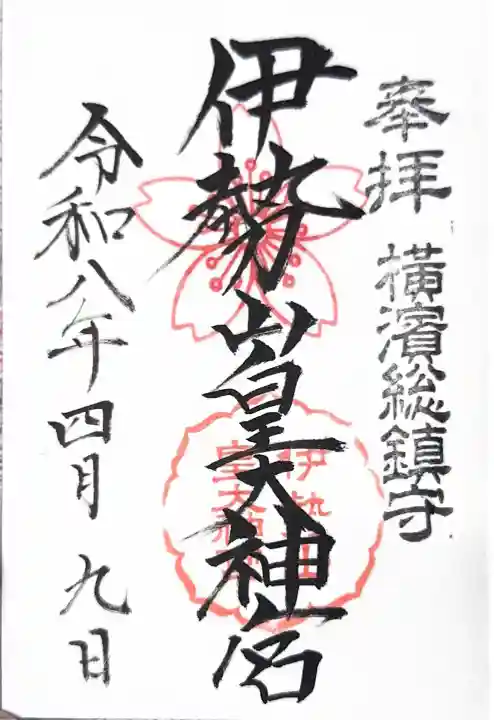 奉拝 横濱総鎮守
伊勢山皇大神宮
令和八年四月九日
伊勢山
皇大神宮